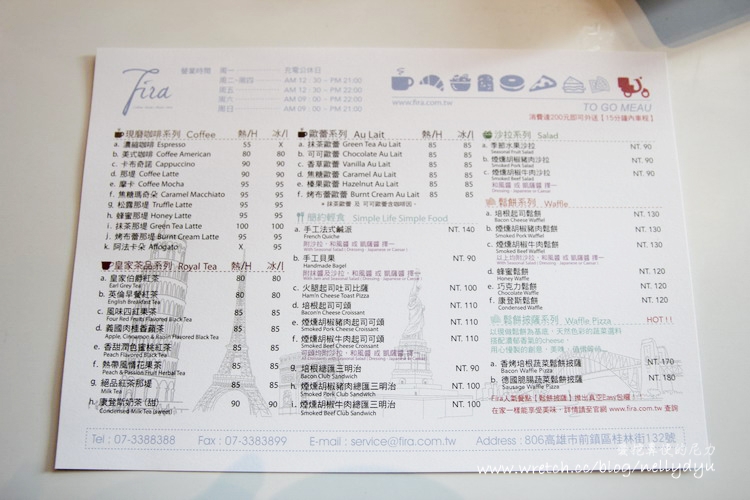 Fira
營業時間 週一 充電公休日
週二-週四 AM 12:30 - PM 21:00
週五 AM 12:30 - PM 22:00
週六 AM 09:00 - PM 22:00
週日 AM 09:00 - PM 21:00
www.fira.com.tw
TO GO MEAU
消費達200元即可外送【15分鐘內車程】
現磨咖啡系列 Coffee 熱/H 冰/I
a. 濃縮咖啡 Espresso 55 X
b. 美式咖啡 Coffee American 80 80
c. 卡布奇諾 Cappuccino 90 90
d. 那堤 Coffee Latte 90 90
e. 摩卡 Coffee Mocha 95 95
f. 焦糖瑪奇朵 Caramel Macchiato 95 95
g. 松露那堤 Truffle Latte 95 95
h. 蜂蜜那堤 Honey Latte 95 95
i. 抹茶那堤 Green Tea Latte 100 100
j. 烤布蕾那堤 Burnt Cream Latte 95 95
k. 阿法卡朵 Affogato X 95
皇家茶品系列 Royal Tea 熱/H 冰/I
a. 皇家伯爵紅茶 80 80
Earl Grey Tea
b. 英倫早餐紅茶 80 80
English Breakfast Tea
c. 風味四紅果茶 85 85
Four Red Fruits Flavored Black Tea
d. 義國肉桂香蘋茶 85 85
Apple, Cinnamon & Raisin Flavored Black Tea
e. 香甜潤色蜜桃紅茶 85 85
Peach Flavored Black Tea
f. 熱帶風情花果茶 85 85
Peach & Passion Fruit Herbal Tea
g. 絕品紅茶那堤 85 85
Milk Tea
h. 康登斯奶茶 (甜) 90 90
Condensed Milk Tea (sweet)
歐蕾系列 Au Lait 熱/H 冰/I
a. 抹茶歐蕾 Green Tea Au Lait 85 85
b. 可可歐蕾 Chocolate Au Lait 85 85
c. 香草歐蕾 Vanilla Au Lait 85 85
d. 焦糖歐蕾 Caramel Au Lait 85 85
e. 榛果歐蕾 Hazelnut Au Lait 85 85
f. 烤布蕾歐蕾 Burnt Cream Au Lait 85 85
* 抹茶歐蕾 及 可可歐蕾不含咖啡因。
簡約輕食 Simple Life Simple Food
a. 手工法式鹹派 NT. 140
French Quiche
附沙拉,和風醬 或 凱薩醬 擇一
b. 手工貝果 NT. 90
Handmade Bagel
附抹醬及沙拉,和風醬 或 凱薩醬 擇一
c. 火腿起司吐司比薩 NT. 100
Ham'n Cheese Toast Pizza
d. 培根起司可頌 NT. 100
Bacon'n Cheese Croissant
e. 煙燻胡椒豬肉起司可頌 NT. 110
Smoked Pork'n Cheese Croissant
f. 煙燻胡椒牛肉起司可頌 NT. 110
Smoked Beef'n Cheese Croissant
g. 培根總匯三明治 NT. 90
Bacon Club Sandwich
h. 煙燻胡椒豬肉總匯三明治 NT. 100
Smoked Pork Club Sandwich
i. 煙燻胡椒牛肉總匯三明治 NT. 100
Smoked Beef Club Sandwich
沙拉系列 Salad
a. 季節水果沙拉 NT. 90
Seasonal Fruit Salad
b. 煙燻胡椒豬肉沙拉 NT. 90
Smoked Pork Salad
c. 煙燻胡椒牛肉沙拉 NT. 90
Smoked Beef Salad
和風醬 或 凱薩醬 擇一
鬆餅系列 Waffle
a. 培根起司鬆餅 NT. 130
Bacon Cheese Waffle
b. 煙燻胡椒豬肉鬆餅 NT. 130
Smoked Pork Waffle
c. 煙燻胡椒牛肉鬆餅 NT. 130
Smoked Beef Waffle
以上均附沙拉,和風醬 或 凱薩醬 擇一
d. 蜂蜜鬆餅 NT. 120
Honey Waffle
e. 巧克力鬆餅 NT. 120
Chocolate Waffle
f. 康登斯鬆餅 NT. 120
Condensed Waffle
鬆餅披薩系列 Waffle Pizza HOT!!
以厚實鬆餅為基底,天然色彩的蔬菜選料
搭配濃郁香氣的cheese,
a. 香烤培根蔬菜鬆餅披薩 NT. 170
Bacon Waffle Pizza
b. 德國脆腸蔬菜鬆餅披薩 NT. 180
Sausage Waffle Pizza
Fira人氣餐點【鬆餅披薩】推出真空Easy包囉!
在家一樣能享受美味,詳情請至官網 www.fira.com.tw 查詢
Tel : 07-3388388 Fax : 07-3383899 E-mail : service@fira.com.tw Address : 806高雄市前鎮區桂林街132號
www.wretch.cc/blog/nellydyu